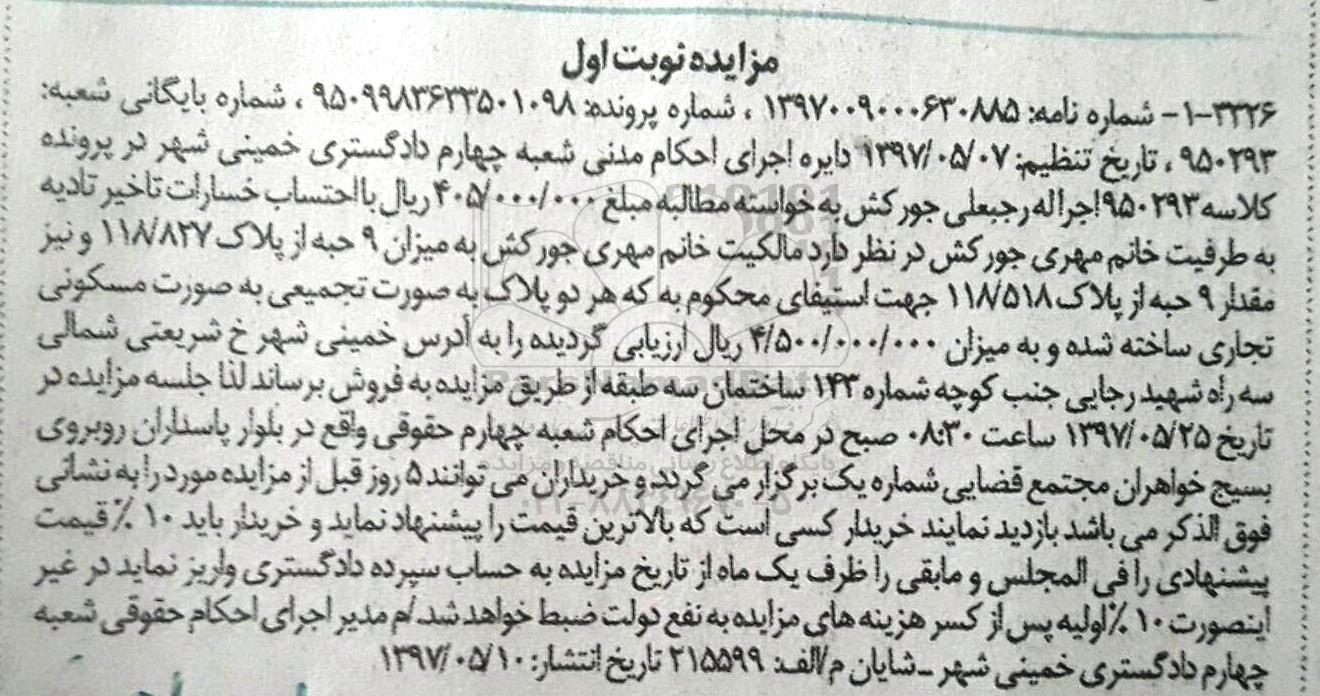 مزایده نوبت اول
۱-۳۳۲۶- شماره نامه: ۱۳۹۷۰۰۹۰۰۰۶۳۰۸۸۵ ، شماره پرونده: ۹۵۰۹۹۸۳۶۳۳۵۰۱۰۹۸ ، شماره بایگانی شعبه:
۹۵۰۲۹۳ ، تاریخ تنظیم: ۱۳۹۷/۰۵/۰۷ دایره اجرای احکام مدنی شعبه چهارم دادگستری خمینی شهر در پرونده
کلاسه ۹۵۰۲۹۳ اجرا له رجبعلی جورکش به خواسته مطالبه مبلغ ۴۰۵/۰۰۰/۰۰۰ ریال با احتساب خسارات تاخیر تادیه
به طرفیت خانم مهری جورکش در نظر دارد مالکیت خانم مهری جورکش به میزان ۹ حبه از پلاک ۱۱۸/۸۲۷ و نیز
مقدار ۹ حبه از پلاک ۱۱۸/۵۱۸ جهت استیفای محکوم به که هر دو پلاک به صورت تجمیعی به صورت مسکونی
تجاری ساخته شده و به میزان ۴/۵۰۰/۰۰۰/۰۰۰ ریال ارزیابی گردیده را به آدرس خمینی شهر خ شریعتی شمالی
سه راه شهید رجایی جنب کوچه شماره ۱۴۳ ساختمان سه طبقه از طریق مزایده به فروش برساند لذا جلسه مزایده در
تاریخ ۱۳۹۷/۰۵/۲۵ ساعت ۰۸:۳۰ صبح در محل اجرای احکام شعبه چهارم حقوقی واقع در بلوار پاسداران روبروی
بسیج خواهران مجتمع قضایی شماره یک برگزار می گردد و خریداران می توانند ۵ روز قبل از مزایده مورد را به نشانی
فوق الذکر می باشد بازدید نمایند خریدار کسی است که بالاترین قیمت را پیشنهاد نماید و خریدار باید ۱۰ ٪ قیمت
پیشنهادی را فی المجلس و مابقی را ظرف یک ماه از تاریخ مزایده به حساب سپرده دادگستری واریز نماید در غیر
اینصورت ۱۰ ٪ اولیه پس از کسر هزینه های مزایده به نفع دولت ضبط خواهد شد. /م مدیر اجرای احکام حقوقی شعبه
چهارم دادگستری خمینی شهر - شایان م/الف: ۲۱۵۵۹۹ تاریخ انتشار: ۱۳۹۷/۰۵/۱۰